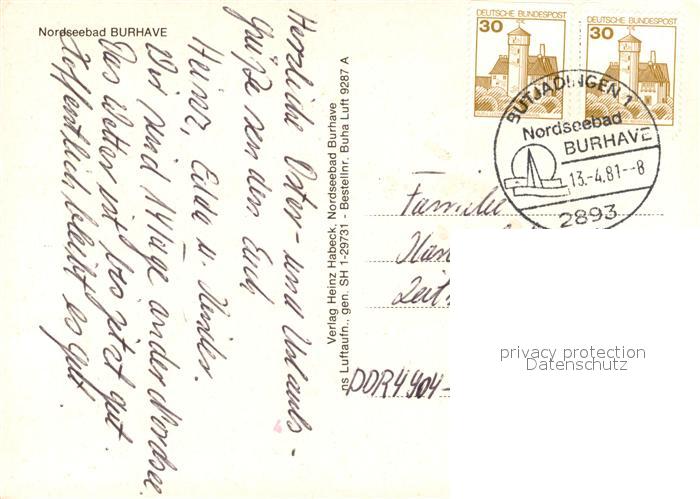 Nordseebad BURHAVE
Herzliche Oster- und Urlaubs-
Grüße senden Euch
Heinz, u. Kinder.
Wir sind 14 Tage an der Nordsee.
Das Wetter ist bis jetzt gut.
Hoffentlich bleibt es gut.
Verlag Heinz Habeck, Nordseebad Burhave
ns Luftaufn., gen. SH 1-29731 - Bestellnr. Buha Luft 9287 A
DEUTSCHE BUNDESPOST
30
DEUTSCHE BUNDESPOST
30
BUTJADINGEN 1
Nordseebad
BURHAVE
13.-4.81--8
2893
Familie
DDR 4904-
privacy protection
Datenschutz